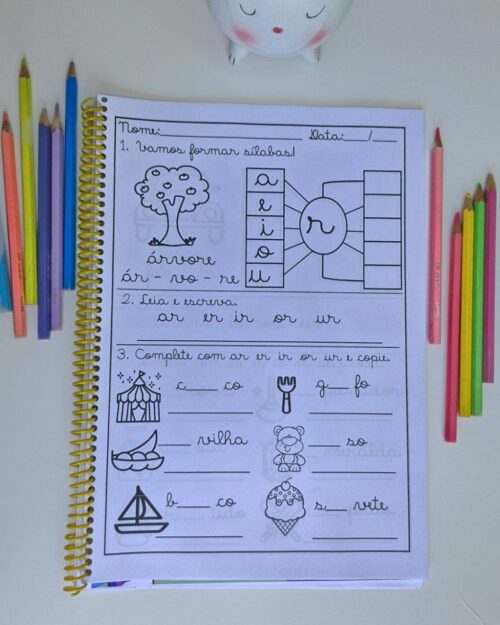 Nome:____________________ Data:___/___
1. Vamos formar sílabas!
a
e
i
o
u
r
árvore
ár - vo - re
2. Leia e escreva.
ar er ir or ur
3. Complete com ar er ir or ur e copie.
c___ co
g___ fo
___ vilha
___ so
b___ co
s___ vete